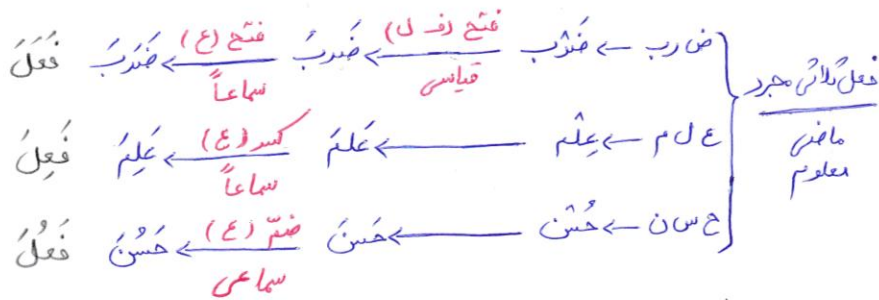 فعل ثلاثی مجرد
ماضی
معلوم
ض ر ب ← ضَرْب ← فتح (ف ل) قیاسی ← ضَربَ ← فتح (ع) سماعاً ← ضَرَبَ فَعَلَ
ع ل م ← عِلْم ← عَلمَ ← کسر (ع) سماعاً ← عَلِمَ فَعِلَ
ح س ن ← حُسْن ← حَسنَ ← ضمّ (ع) سماعی ← حَسُنَ فَعُلَ